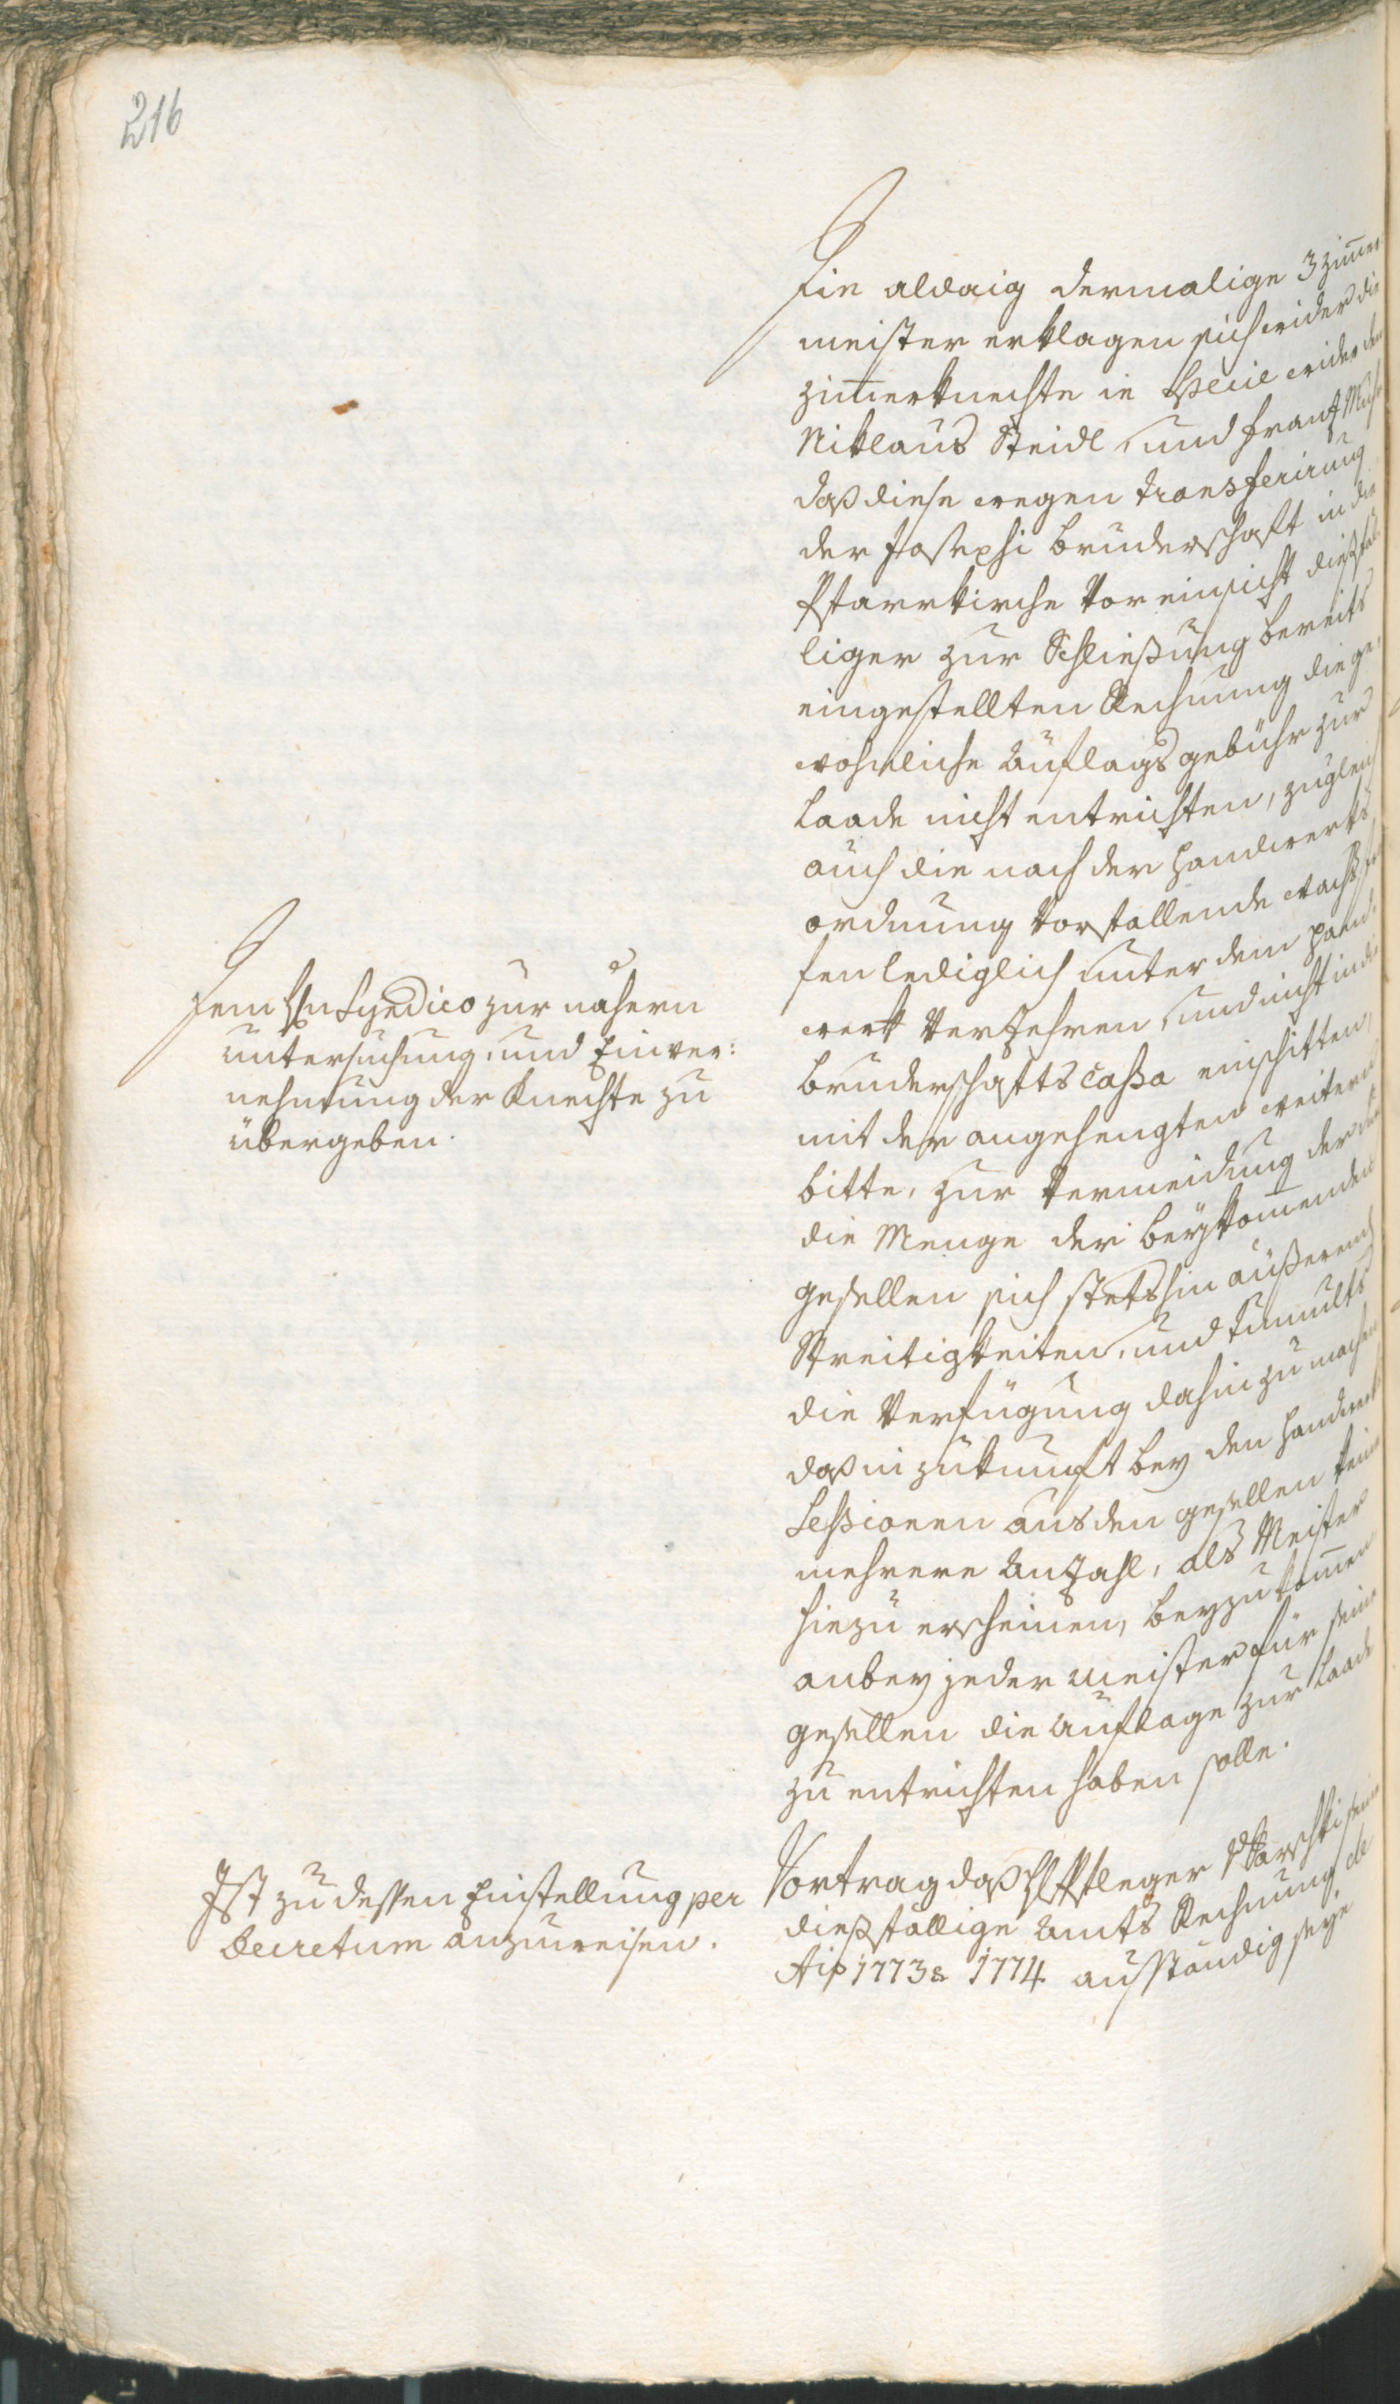 216
Die aldaig dermalige 3 zimer
meister erklagen sich wider die
zimerknechte in specie wider den
Niklaus Steidl und Franz
daß diese wegen transferirung
der Josephi bruderschaft in die
Pfarrkirche vor einsicht dießfäl
liger zur Schließung bereits
eingestellten Rechnung die ge,
wohnliche Auflags gebühr zur
Laade nicht entrichten, zugleich
auch die nach der Handwerks
ordnung vorfallende wachs
fen lediglich unter dem Hand,
werk verzehren und nicht in die
bruderschafts Cassa einschitten,
mit der angehengten weitern
bitte, zur vermeidung der durch
die Menge der beykomenden
gesellen sich stetshin äußerend
Streitigkeiten, und tumults
die Verfügung dahin zu machen
daß in zukunft bey den Handwerks
Sessionen aus den gesellen kein
mehrere Anzahl, als Meister
hiezu erscheinen, beyzukomen
anbey jeder Meister für seine
gesellen die Auflage zur Laade
zu entrichten haben solle.
Dem Hn Syndico zur nähern
untersuchung, und Einver:
nehmung der Knechte zu
übergeben.
Vortrag daß H Pfleger seine
dießfällige Amts Rechnung de
Ais 1773 & 1774 ausständig seye
Ist zu dessen Einstellung per
Decretum anzuweisen.